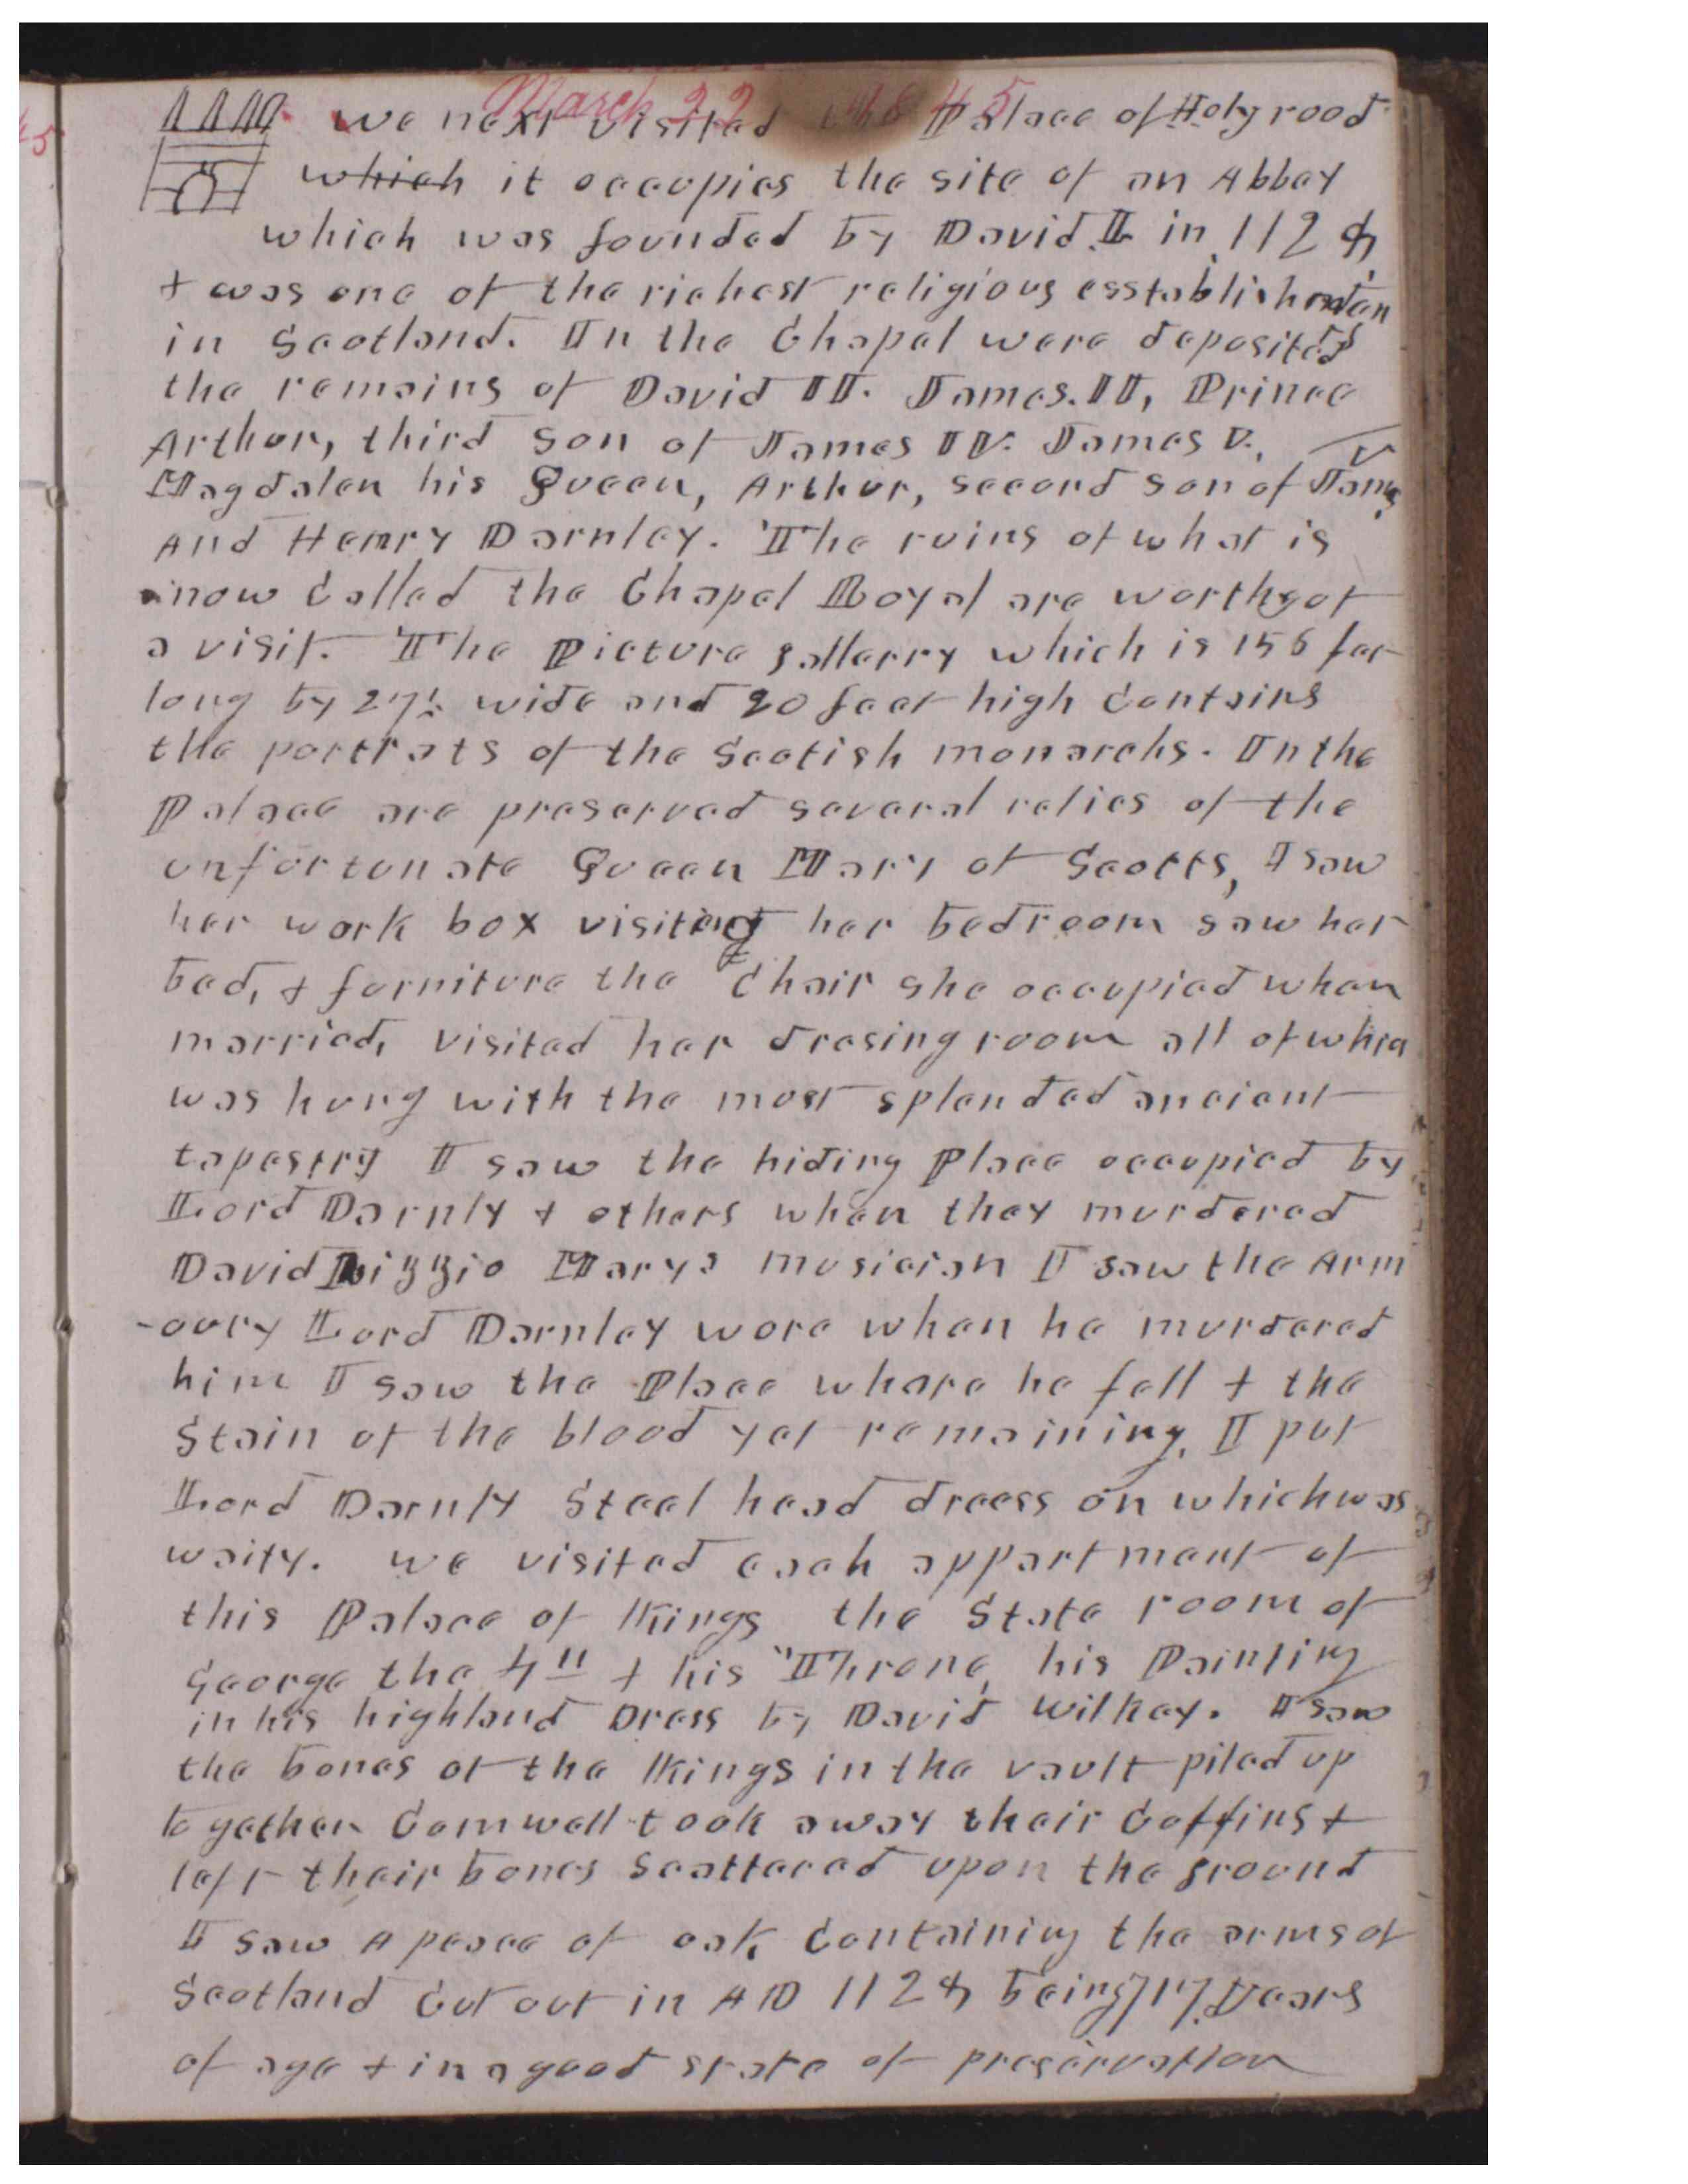 March 22 1845
we next visited the Palace of Holyrood
which it occupies the site of an Abbey
which was founded by David I in 1128
+ was one of the richest religious esstablishmten
in Scotland. In the Chapel were deposited
the remains of David II. James. II, Prince
Arthur, third son of James IV. James V.
Magdalen his Queen, Arthur, second son of James V
And Henry Darnley. The ruins of what is
now called the Chapel Royal are worthy of
a visit. The Picture gallerry which is 156 feet
long by 27½ wide and 20 feet high contains
the portrats of the Scotish monarchs. In the
Palace are preserved several relics of the
unfortunate Queen Mary of Scotts, I saw
her work box visiting her bedroom saw her
bed, + furniture the chair she occupied when
married, visited her drasing room all of which
was hung with the most splended ancient
tapestry I saw the hiding place occupied by
Lord Darnly + others when they murdered
David Rizzio Marys musician I saw the Arm
-oury Lord Darnley wore when he murdered
him I saw the Place whare he fell + the
Stain of the blood yet remaining. I put
Lord Darnly Steel head dreess on which was
waity. we visited each appartment of
this Palace of Kings the State room of
George the 4" + his Throne, his Painting
in his highland Dress by David Wilkey. I saw
the bones of the Kings in the vault piled up
together Comwell took away their coffins +
left their bones scattered upon the ground
I saw A peace of oak containing the arms of
Scotland cut out in AD 1128 being 717 Years
of age + in a good state of preservation